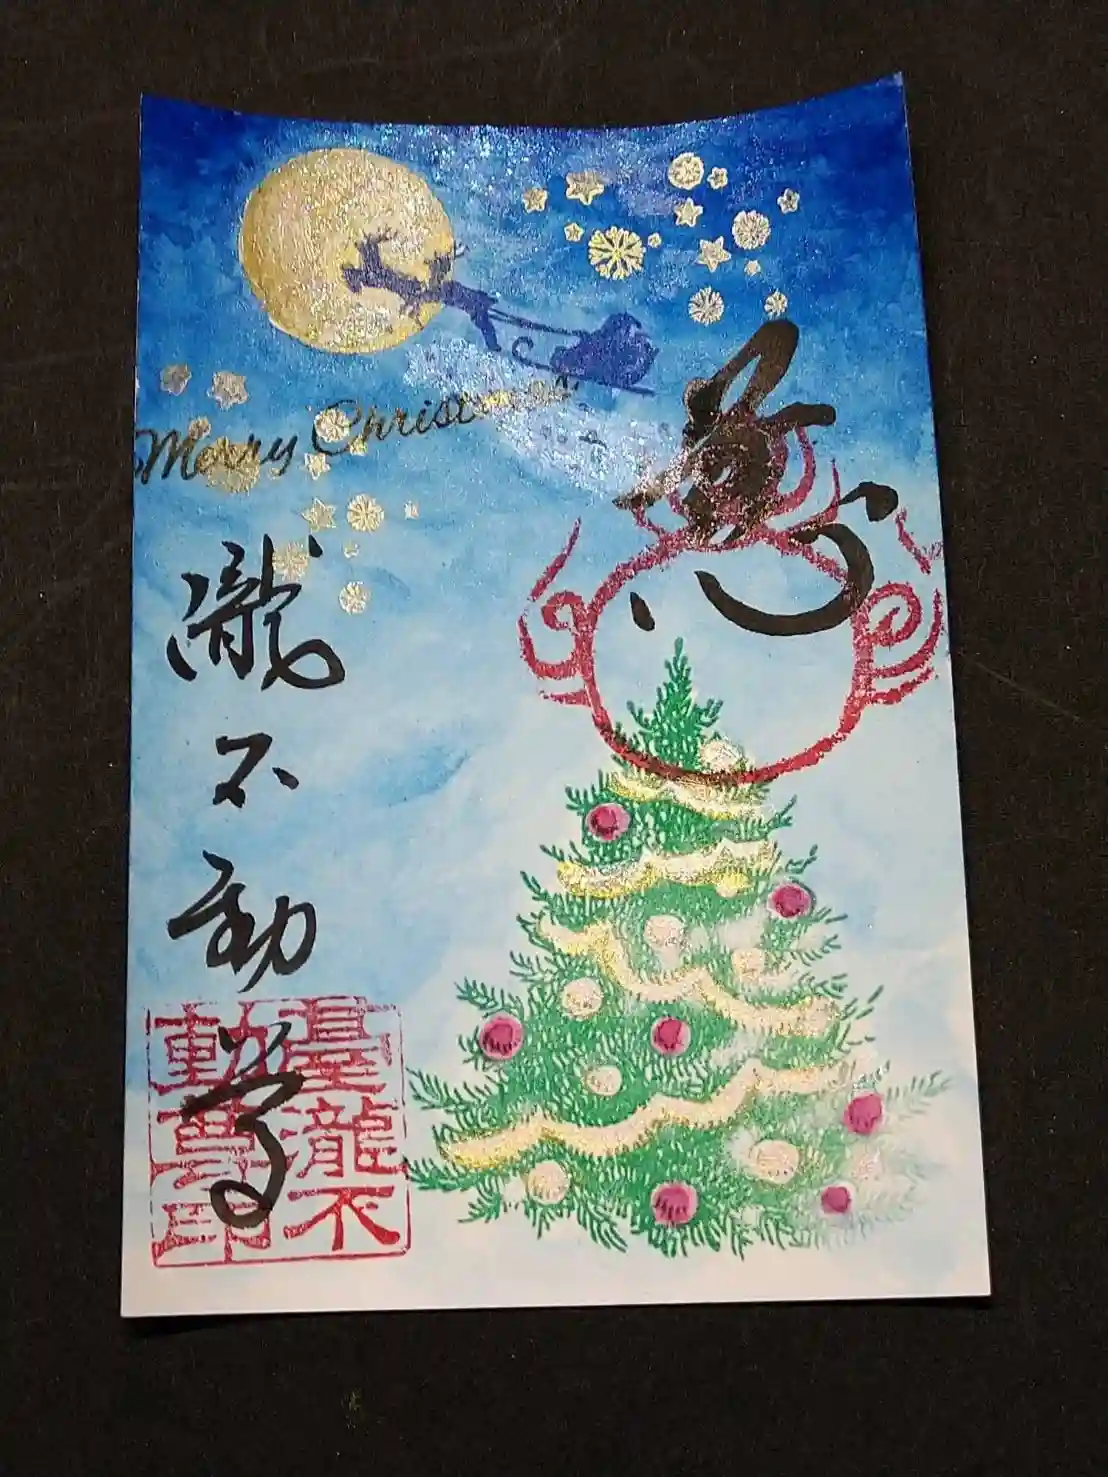 Merry Christmas
瀧不動尊
瀧不
動尊印